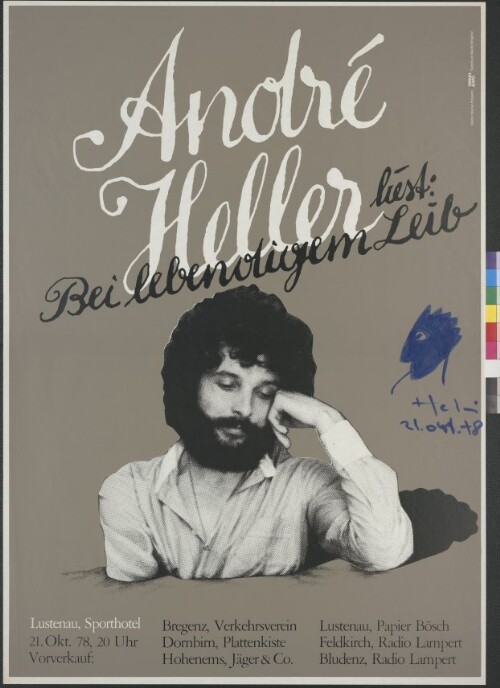 André
Heller
liest:
Bei lebendigem Leib
21. Okt. 78
Lustenau, Sporthotel
21. Okt. 78, 20 Uhr
Vorverkauf:
Bregenz, Verkehrsverein
Dornbirn, Plattenkiste
Hohenems, Jäger & Co.
Lustenau, Papier Bösch
Feldkirch, Radio Lampert
Bludenz, Radio Lampert